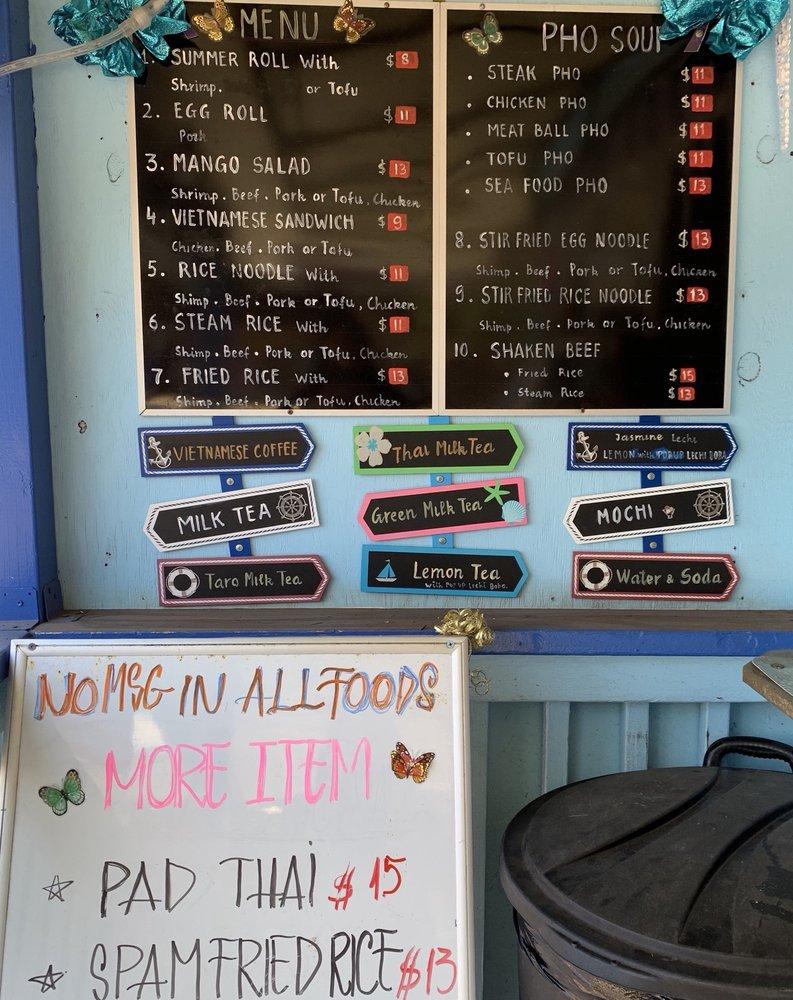 MENU
1. SUMMER ROLL With $8
Shrimp. or Tofu
2. EGG ROLL $11
Pork
3. MANGO SALAD $13
Shrimp. Beef. Pork or Tofu, Chicken
4. VIETNAMESE SANDWICH $9
Chicken. Beef. Pork or Tofu
5. RICE NOODLE With $11
Shimp. Beef. Pork or Tofu, Chicken
6. STEAM RICE With $11
Shimp. Beef. Pork or Tofu, Chicken
7. FRIED RICE With $13
Shimp. Beef. Pork or Tofu, Chicken
PHO SOUP
. STEAK PHO $11
. CHICKEN PHO $11
. MEAT BALL PHO $11
. TOFU PHO $11
. SEA FOOD PHO $13
8. STIR FRIED EGG NOODLE $13
Shimp. Beef. Pork or Tofu, Chicken
9. STIR FRIED RICE NOODLE $13
Shimp. Beef. Pork or Tofu, Chicken
10. SHAKEN BEEF
• Fried Rice $15
• Steam Rice $13
VIETNAMESE COFFEE
MILK TEA
Taro Milk Tea
Thai Milk Tea
Green Milk Tea
Lemon Tea
With Pop up Lechi Boba.
Jasmine Lechi
LEMON with POPUP LECHI BOBA
MOCHI
Water & Soda
NO MSG IN ALL FOODS
MORE ITEM
☆ PAD THAi $15
☆ SPAM FRIED RICE $13